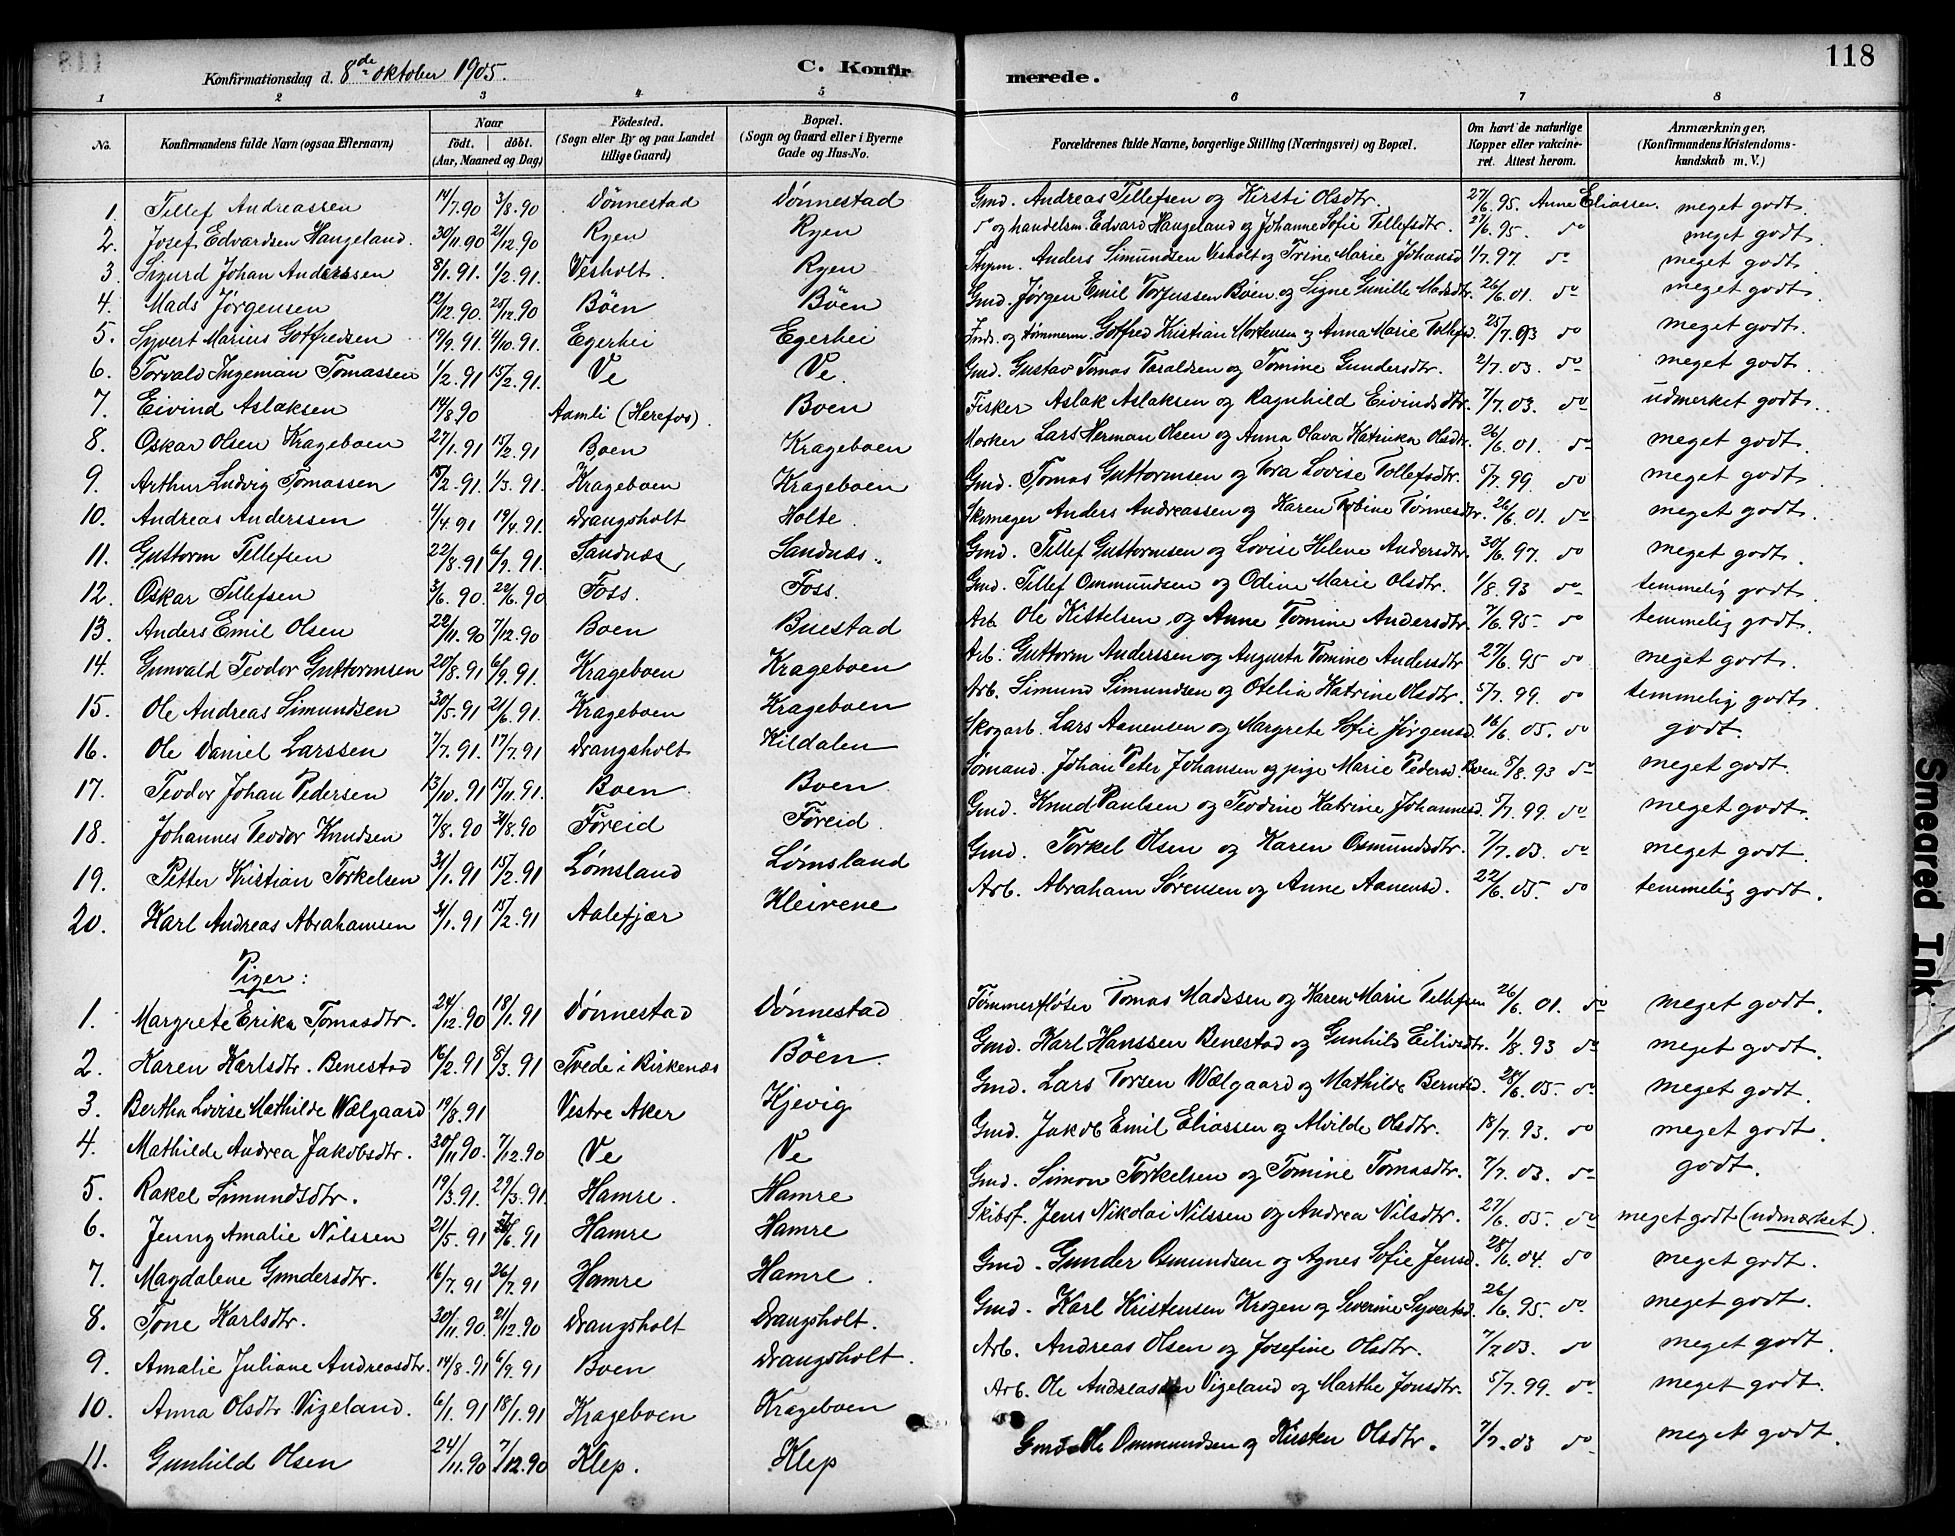 118
Konfirmationsdag d. 8de oktober 1905. C. Konfirmerede.
1 2 3 4 5 6 7 8
No. Konfirmandens fulde Navn (ogsaa Efternavn) Naar födt. döbt. (Aar, Maaned og Dag) Födested. (Sogn eller By og paa Landet tillige Gaard) Bopæl. (Sogn og Gaard eller i Byerne Gade og Hus-No. Forældrenes fulde Navne, borgerlige Stilling (Næringsvei) og Bopæl. Om havt de naturlige Kopper eller vakcineret. Attest herom. Anmærkninger, (Konfirmandens Kristendomskundskab m. V.)
1. Tellef Andreassen 14/7.90 3/8.90 Dønnestad Dønnestad Gmd. Andreas Tellefsen og Kirsti Olsdtr. 27/6.95. Anne Eliassen. meget godt.
2. Josef Edvardsen Haugeland. 30/11.90 21/12.90 Ryen Ryen do og handelsm. Edvard Haugeland og Johanne Sofie Tellefsdtr. 27/6.95. do meget godt.
3. Sigurd Johan Anderssen 8/1.91. 1/2.91. Vesholt. Ryen Styrm. Anders Simundsen Vesholt og Trine Marie Johansd. 1/7.97. do meget godt.
4. Mads Jörgensen 12/12.90. 25/12.90 Böen Böen Gmd. Jørgen Emil Torjussen Böen og Signe Gunille Madsdtr. 26/6.01. do meget godt.
5. Syvert Marius Gotfredsen 19/9.91. 4/10.91. Egerhei Egerhei Inds. og tömmerm. Gotfred Kristian Mortensen og Anna Marie Tellefsd. 25/7.93 do meget godt.
6. Torvald Ingeman Tomassen 1/2.91 15/2.91. Ve Ve. Gmd. Gustav Tomas Taraldsen og Tomine Gundersdtr. 2/7.03. do meget godt.
7. Eivind Aslaksen 14/8.90 Aamli (Herefos). Boen Fisker Aslak Aslaksen og Ragnhild Eivindsdtr. 7/7.03. do udmerket godt.
8. Oskar Olsen Krageboen 27/1.91 15/2.91 Boen Krageboen Lars Herman Olsen og Anna Olava Katrinka Olsdtr. 26/6.01. do meget godt.
9. Arthur Ludvig Tomassen 15/2.91. 1/3.91. Krageboen Krageboen Gmd. Tomas Guttormsen og Tora Lovise Tollefsdtr. 5/7.99. do meget godt.
10. Andreas Anderssen 7/4.91 19/4.91. Drangsholt Holte. Skomager Anders Andreassen og Karen Tobine Tønnesdtr. 26/6.01. do meget godt.
11. Guttorm Tellefsen 22/8.91 6/9.91. Sandnæs Sandnæs. Gmd. Tellef Guttormsen og Lovise Helene Andersdtr. 30/6.97. do meget godt.
12. Oskar Tellefsen 3/6.90. 22/6.90 Foss. Foss. Gmd. Tellef Ommundsen og Odine Marie Olsdtr. 1/8.93 do temmelig godt.
13. Anders Emil Olsen 22/11.90 7/12.90 Boen Buestad Arb. Ole Kittelsen og Anne Tomine Andersdtr. 7/6.95- do temmelig godt.
14. Gunvald Teodor Guttormsen 20/8.91 6/9.91. Krageboen Krageboen Arb. Guttorm Anderssen og Augusta Tomine Andersdtr. 27/6.95 do meget godt.
15. Ole Andreas Simundsen 30/5.91 21/6.91. Krageboen Krageboen Arb. Simund Simundsen og Otelia Katrine Olsdtr. 5/7.99. do temmelig godt.
16. Ole Daniel Larssen 7/7.91. 17/7.91 Drangsholt Kildalen Skogarb. Lars Aanensen og Margrete Sofie Jörgensd. 16/6.05. do godt.
17. Teodor Johan Pedersen 13/10.91 15/11.91. Boen. Boen Sømand. Johan Peter Johansen og pige Marie Pedersd. Boen 8/8.93 do meget godt.
18. Johannes Teodor Knudsen 7/8.90 31/8.90 Föreid Föreid. Gmd. Knud Paulsen og Teodine Katrine Johannesd. 5/7.99. do meget godt.
19. Petter Kristian Torkelsen 31/1.91 15/2.91 Lømsland Lømsland Gmd. Torkel Olsen og Karen Osmundsdtr. 7/7.03. do meget godt.
20. Karl Andreas Abrahamsen 31/1.91 15/2.91 Aalefjær Kleivene Arb. Abraham Sørensen og Anne Aanensd. 22/6.05. do temmelig godt.
Piger:
1. Margrete Erika Tomasdtr. 24/12.90 18/1.91 Dønnestad Dønnestad Tømmerfløter Tomas Madssen og Karen Marie Tellefsen 26/6.01. do meget godt.
2. Karen Karlsdtr. Benestad 16/2.91 8/3.91 Tvede i Birkenæs Böen. Gmd. Karl Hanssen Benestad og Gunhild Eilivsdtr. 1/8.93 do meget godt.
3. Bertha Lovise Mathilde Wælgaard 19/8.91 Vestre Aker Kjevig Gmd. Lars Torsen Wælgaard og Mathilde Berntsd. 28/6.05. do meget godt.
4. Mathilde Andrea Jakobsdtr. 30/11.90. 7/12.90 Ve Ve Gmd. Jakob Emil Eliassen og Alvilde Olsdtr. 18/7.93. do meget godt.
5. Rakel Simundsdtr. 19/3.91. 29/3.91 Hamre. Hamre Gmd. Simon Torkelsen og Tomine Tomasdtr. 7/7.03. do godt.
6. Jenny Amalie Nilssen 21/5.91 /6.91 Hamre Hamre Skibsf. Jens Nikolai Nilssen og Andrea Nilsdtr. 27/6.05. do meget godt (udmærket).
7. Magdalene Gundersdtr. 16/7.91 26/7.91 Hamre Hamre. Gmd. Gunder Osmundsen og Agnes Sofie Jensd. 28/6.04. do meget godt.
8. Tone Karlsdtr. 30/11.90. 21/12.90 Drangsholt Drangsholt. Gmd. Karl Kristensen Krogen og Severine Syvertsd. 26/6.95 do meget godt.
9. Amalie Juliane Andreasdtr. 14/8.91 6/9.91 Boen Drangsholt. Arb. Andreas Olsen og Josefine Olsdtr. 7/7.03. do meget godt.
10. Anna Olsdtr Vigeland. 6/1.91 18/1.91 Krageboen Krageboen Arb. Ole Andreassen Vigeland og Marthe Jonsdtr. 5/7.99. do meget godt.
11. Gunhild Olsen 24/11.90 7/12.90 Klep. Klep Gmd. Ole Ommundsen og Kirsten Olsdtr. 7/7.03 do meget godt.
Smeared Ink